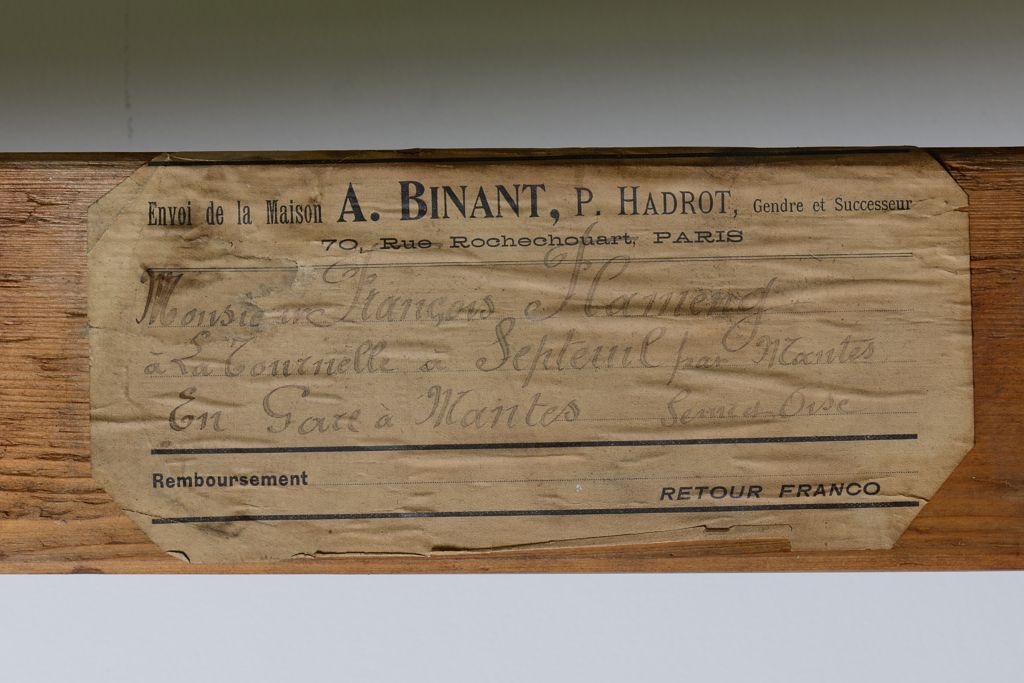 Envoi de la Maison A. BINANT, P. HADROT, Gendre et Successeur
70, Rue Rochechouart, PARIS
Monsieur François Flameng
à La Tournelle à Septeuil par Mantes
En Gare à Mantes Seine & Oise
Remboursement
RETOUR FRANCO